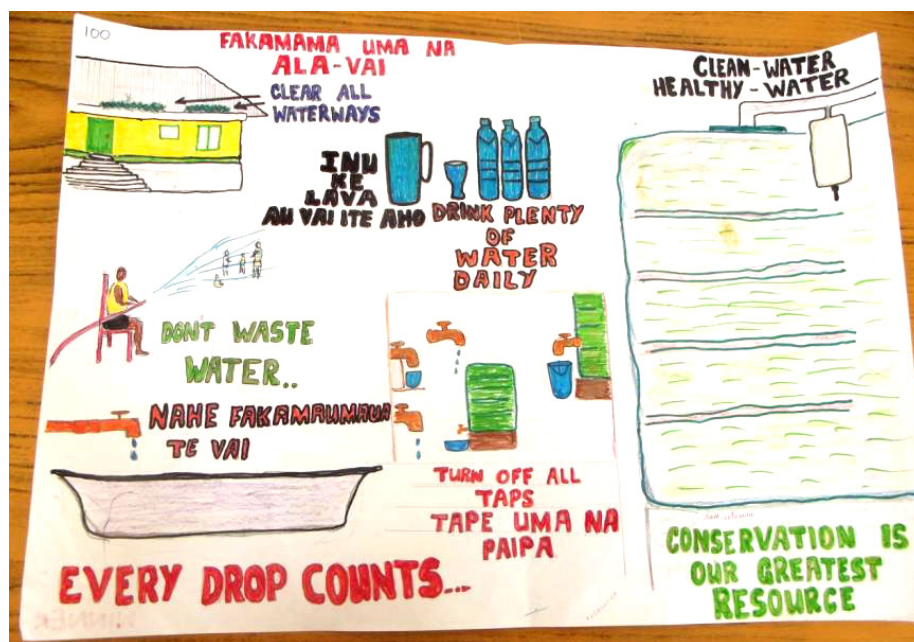 100
FAKAMAMA UMA NA
ALA-VAI
CLEAR ALL
WATERWAYS
CLEAN-WATER
HEALTHY-WATER
INU
KE
LAVA
AU VAI ITE AHO
DRINK PLENTY
OF
WATER
DAILY
DON'T WASTE
WATER..
NAHE FAKAMAUMAUA
TE VAI
TURN OFF ALL
TAPS
TAPE UMA NA
PAIPA
EVERY DROP COUNTS...
CONSERVATION IS
OUR GREATEST
RESOURCE
WINNER